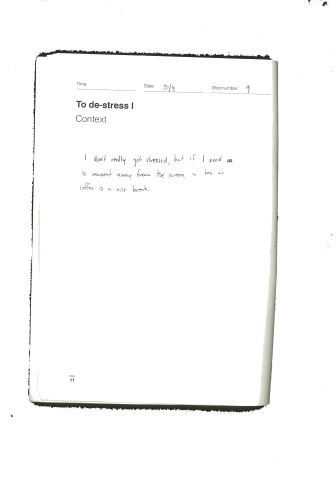 Time Date 21/9 Shot number 9
To de-stress I
Context
I don't really get stressed, but if I need
a moment away from the screen, a tea or
coffee is a nice break.
11